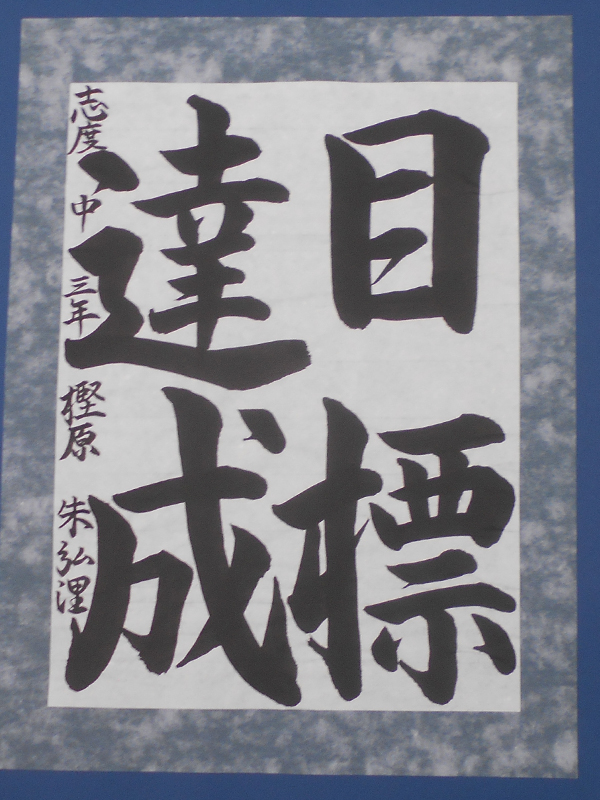 目標
達成
志度中 三年 樫原 朱弘浬